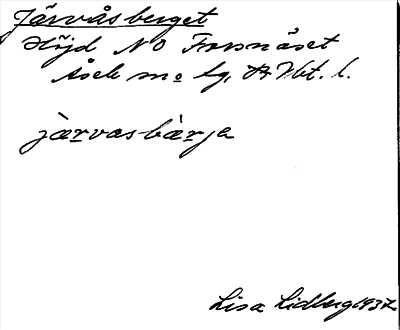 Järvåsberget
Höjd NO Forsnäset
Åsele m o lg, Vbt. l.
järvasbärja
Lisa Lidberg 1937